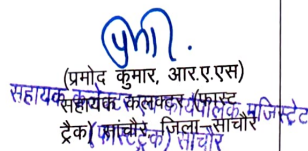 (प्रमोद कुमार, आर.ए.एस)
सहायक कलक्टर (फास्ट
ट्रैक) सांचौर, जिला–सांचौर
सहायक कलेक्टर एवं कार्यपालक मजिस्ट्रेट
(फास्ट ट्रैक) सांचौर